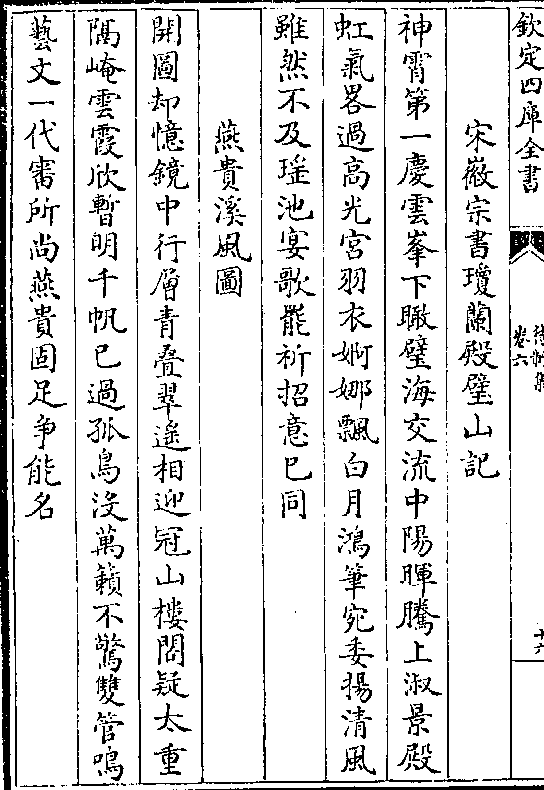 欽定四庫全書
待制集
卷六
十六
宋徽宗書瓊蘭殿璧山記
神霄第一慶雲峯下瞰璧海交流中陽暉騰上淑景殿
虹氣畧過高光宮羽衣婀娜飄白月鴻筆宛委揚清風
雖然不及瑤池宴歌罷祈招意已同
燕貴溪風圖
開圖却憶鏡中行層青叠翠遙相迎冠山樓閣疑太重
隔崦雲霞欣暫明千帆已過孤鳥沒萬籟不驚雙管鳴
藝文一代審所尚燕貴固足爭能名